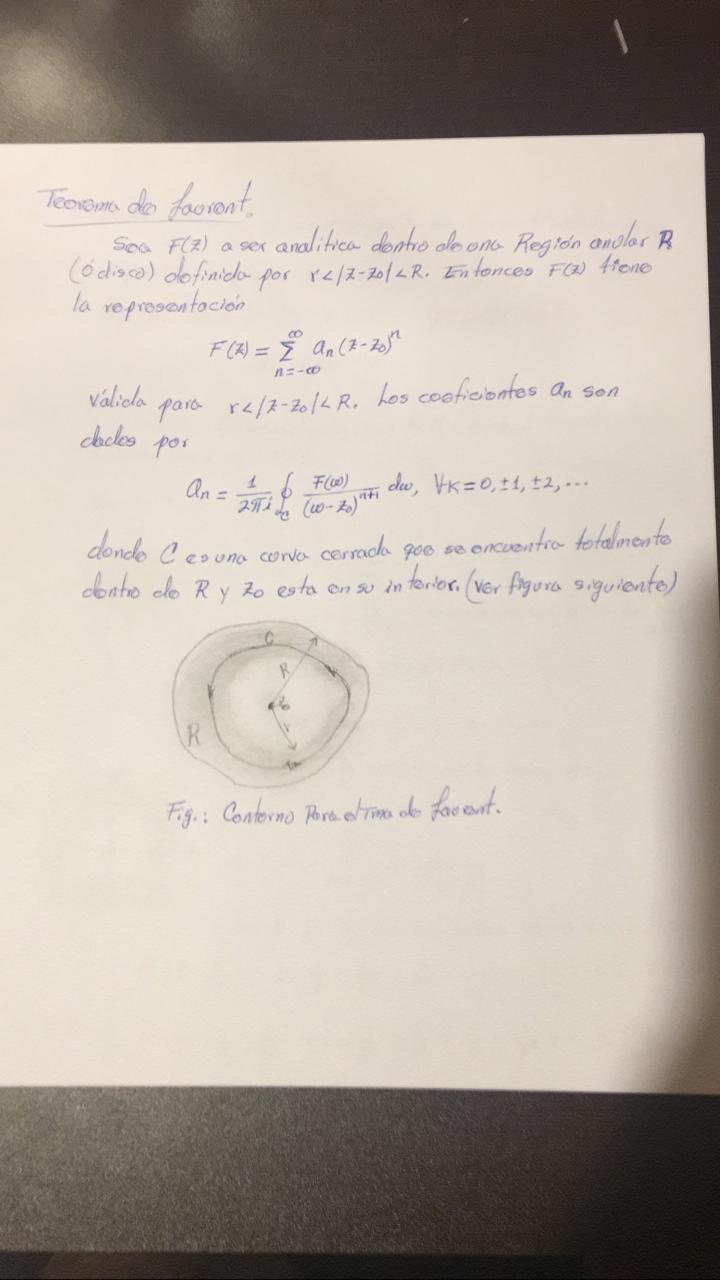 Teorema de Laurent.
Sea F(z) a ser analitica dentro de una Región anular R
(ó disco) definida por r<|z-z₀|<R. Entonces F(z) tiene
la representación
F(z) = ∑_{n=-∞}^{∞} aₙ(z-z₀)ⁿ
válida para r<|z-z₀|<R. Los coeficientes aₙ son
dados por
aₙ = \frac{1}{2πi} ∮_C \frac{F(ω)}{(ω-z₀)^{n+1}} dω, ∀k=0,±1,±2,...
donde C es una curva cerrada que se encuentra totalmente
dentro de R y z₀ esta en su interior. (ver figura siguiente)
C
R
z₀
r
R
Fig.: Contorno Para el Tma de Laurent.